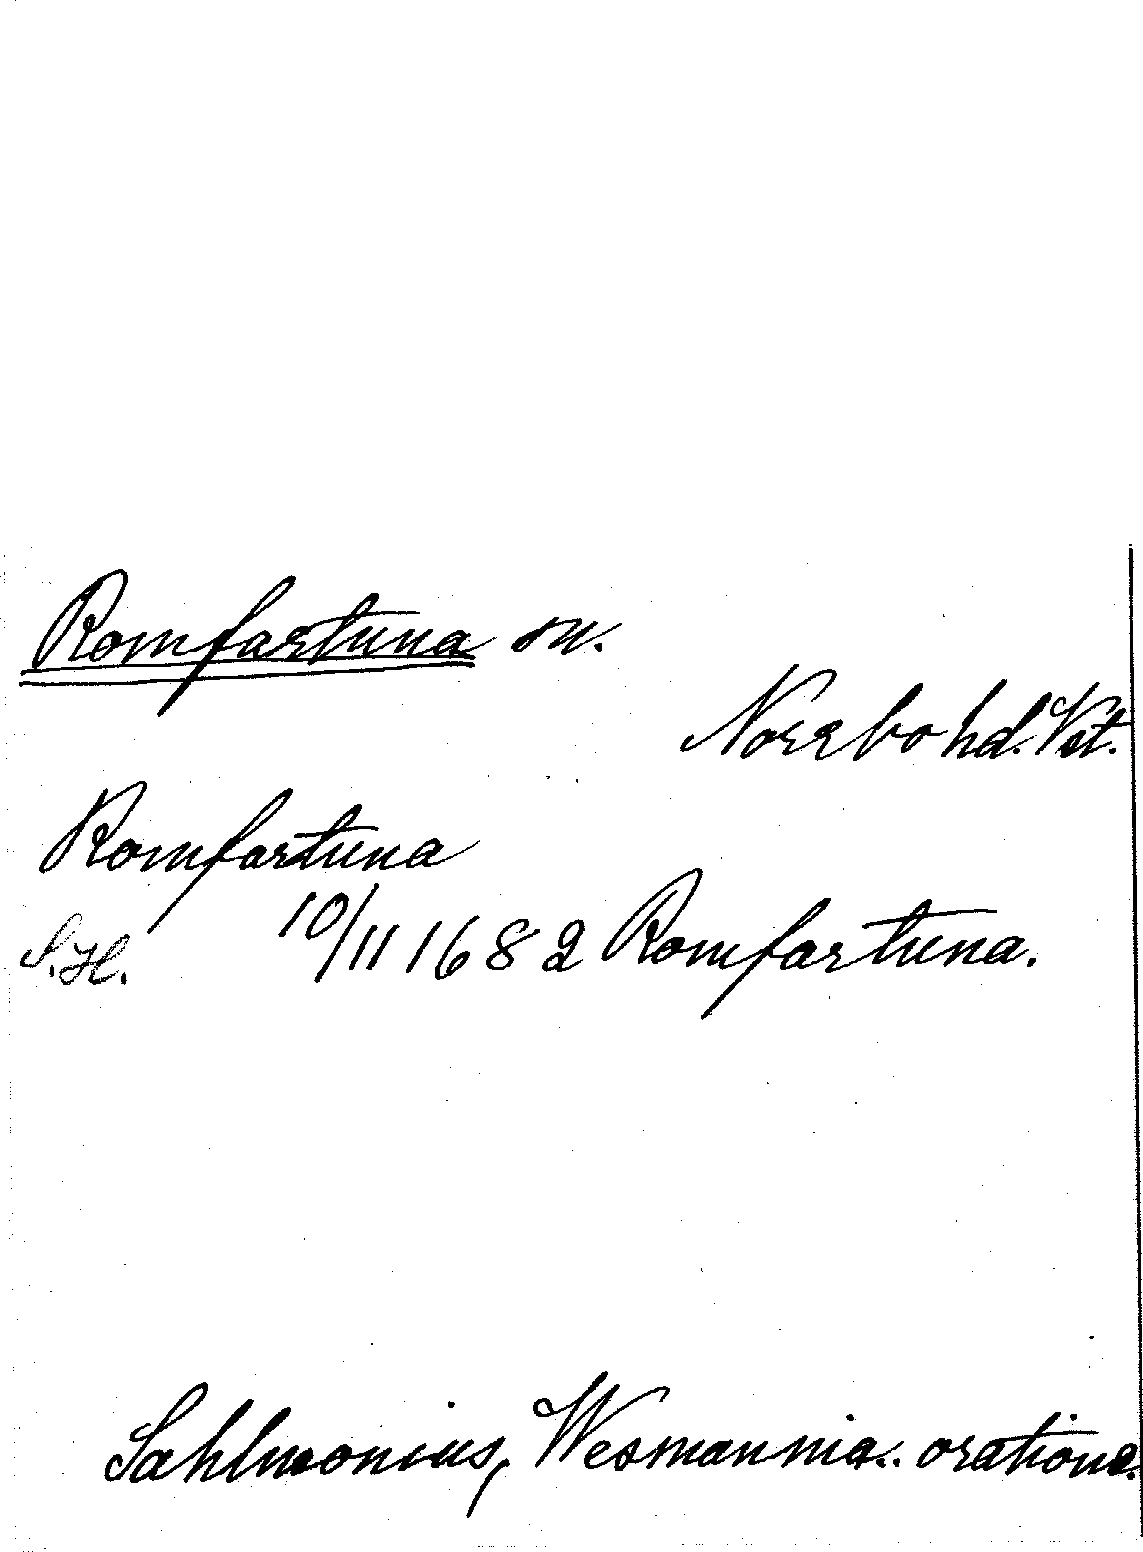 Romfartuna sn.
Norrbo hd. Vst.
Romfartuna
S.H. 10/11 1682 Romfartuna.
Sahlmonius, Wesmannia.. oratione.